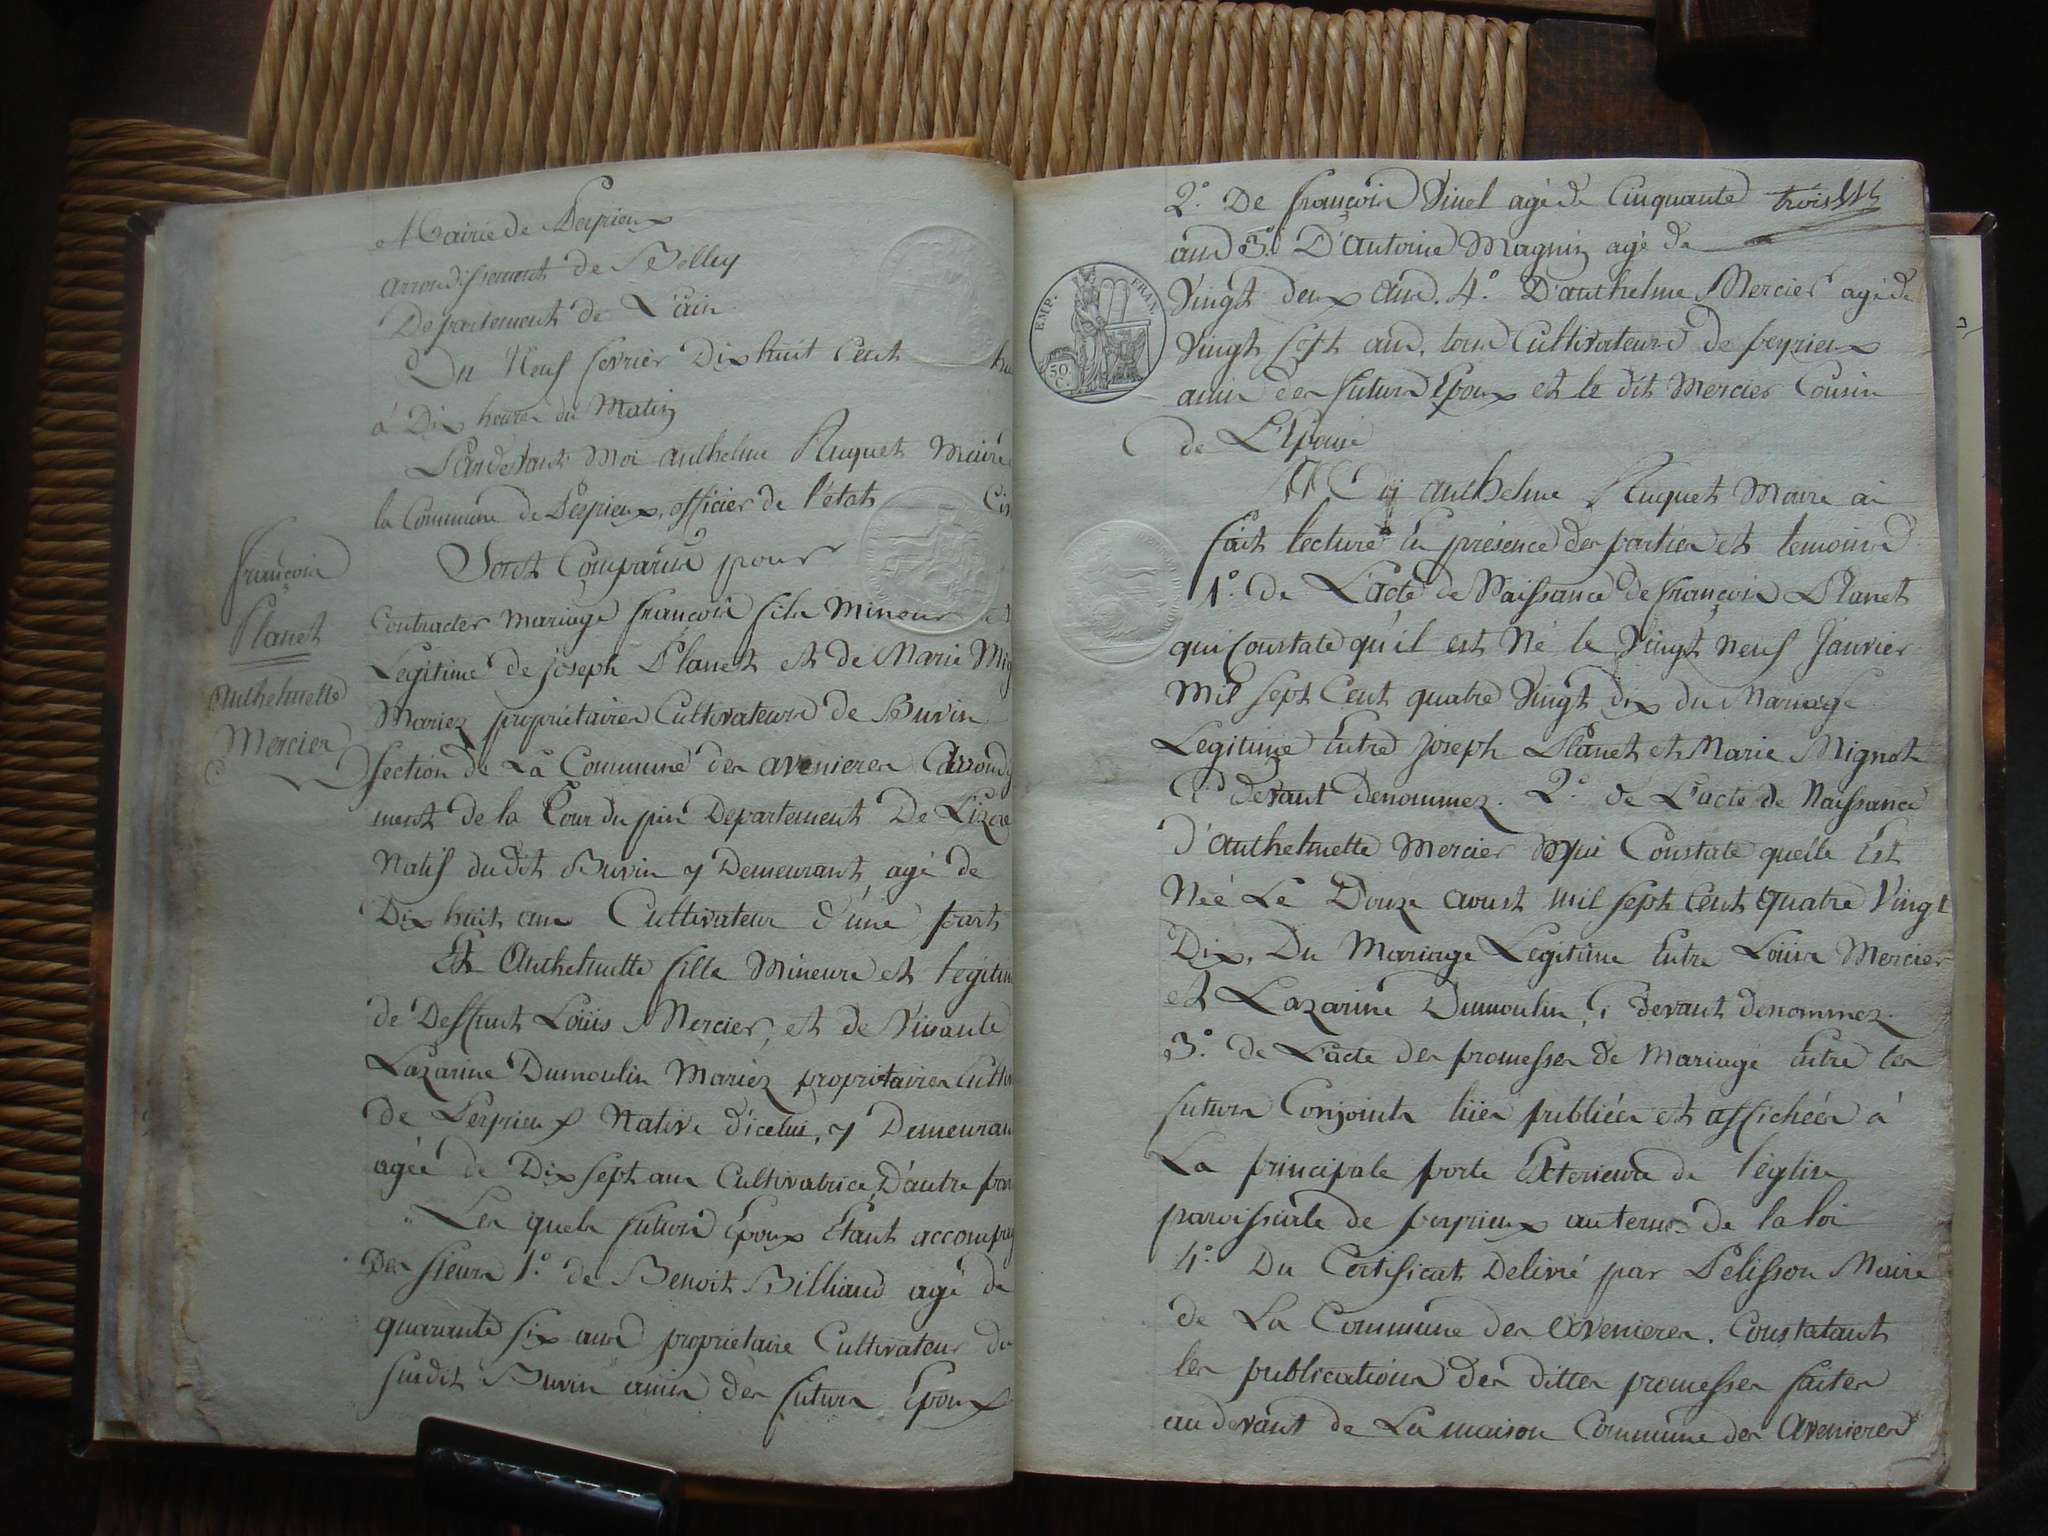 Mairie de Peyrieux
arrondissement de Belley
Departement de L'ain
Du Neuf fevrier Dix huit Cent hu
à Dix heures du Matin
Pardevant Moi anthelme Ruquet Maire
la Commune de Peyrieux, officier de l'état Ci
Sont Comparus pour
François
Planet
anthelmette
Mercier
Contracter mariage françois fils Mineur et
Legitime de joseph Planet et de Marie Mig
Mariez propriétaires Cultivateurs de Buvin
section de La Commune des avenieres arrondi
ment de la Tour du pin Departement De L'izere
Natif du dit Buvin y Demeurant, agé de
Dix huit ans Cultivateur d'une part
Et Anthelmette fille Mineure et legitim
de Deffunt Loüis Mercier, et de Vivante
Lazarine Dumoulin Mariez propritaires Cultiv
de Peyrieux Native d'icelui, y Demeuran
agée de Dix sept ans Cultivatrice, D'autre par
Les quels futurs Epoux Etant accompag
Des sieurs 1.° de Benoit Billiaud agé de
quarante six ans propriétaire Cultivateur du
susdit Buvin amis des futurs Epoux
2.° De françois Vinel agé de Cinquante trois
ans 3.° D'antoine Magnin agé de
Vingt deux ans. 4.° D'anthelme Mercier agé de
Vingt sept ans, tous Cultivateurs de peyrieux
amis des futurs Epoux et le dit Mercier Cousin
de L'Epouse
EMP. FRAN.
50 C.
Moi anthelme Ruquet Maire ai
fait lecture En présence des parties et temoins
1.° De L'acte de Naissance de françois Planet
qui Constate qu'il est Né le Vingt neuf Janvier
Mil sept Cent quatre Vingt dix du Mariage
Legitime Entre joseph Planet et Marie Mignot
Ci devant denommez. 2.° de L'acte de Naissance
d'anthelmette Mercier qui Constate quelle Est
Née Le Douze aoust mil sept Cent quatre Vingt
Dix, Du Mariage Legitime Entre Loüis Mercier
et Lazarine Dumoulin, Ci devant denommez.
3.° de L'acte des promesses de Mariage Entre les
futurs Conjoints lües publiées et affichées à
La principale porte Exterieure de l'église
paroissiale de peyrieux au terme de la loi
4.° Du Certificat Delivré par Pelisson Maire
de La Commune des Avenieres. Constatant
les publications des dittes promesses faites
au devant de La maison Commune des Avenieres